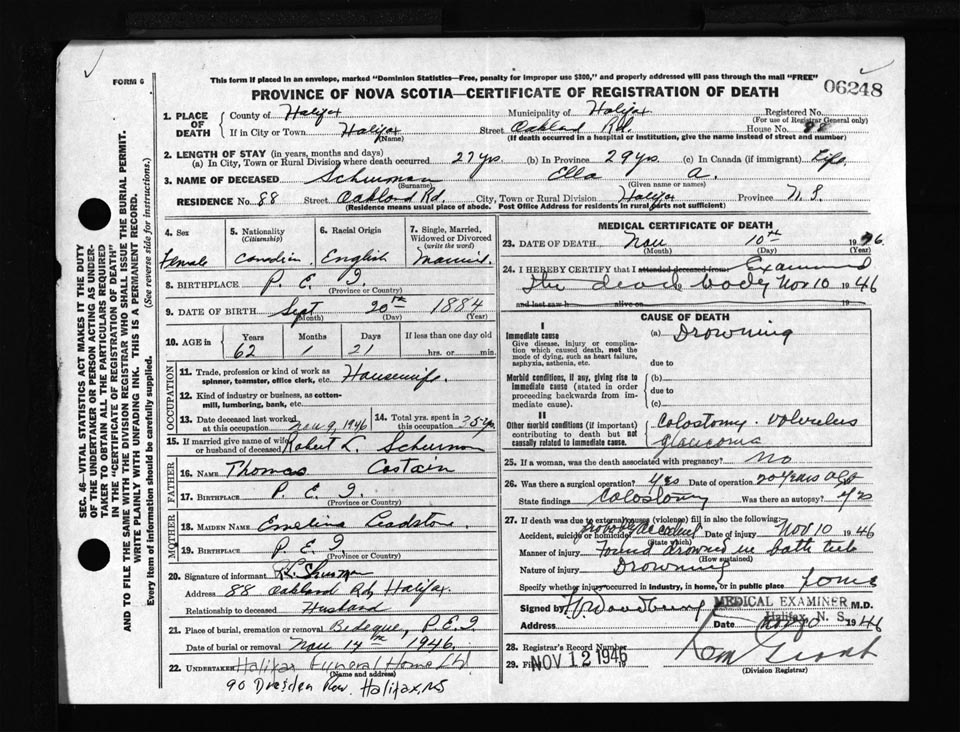 FORM 6
This form if placed in an envelope, marked "Dominion Statistics—Free, penalty for improper use $300," and properly addressed will pass through the mail "FREE"
PROVINCE OF NOVA SCOTIA—CERTIFICATE OF REGISTRATION OF DEATH
06248
1. PLACE OF DEATH
County of Halifax Municipality of Halifax Registered No.
(For use of Registrar General only)
If in City or Town Halifax Street Oakland Rd. House No. 88
(Name) (If death occurred in a hospital or institution, give the name instead of street and number)
2. LENGTH OF STAY (in years, months and days)
(a) In City, Town or Rural Division where death occurred 27 yrs. (b) In Province 29 yrs. (c) In Canada (if immigrant) Life
3. NAME OF DECEASED Schurman Ella A.
(Surname) (Given name or names)
RESIDENCE No. 88 Street Oakland Rd. City, Town or Rural Division Halifax Province N.S.
(Residence means usual place of abode. Post Office Address for residents in rural parts not sufficient)
4. Sex
Female
5. Nationality
(Citizenship)
Canadian
6. Racial Origin
English
7. Single, Married, Widowed or Divorced
(write the word)
Married.
8. BIRTHPLACE P. E. I.
(Province or Country)
9. DATE OF BIRTH Sept 20th 1884
(Month) (Day) (Year)
10. AGE in
Years Months Days If less than one day old
62 1 21 hrs. or min.
OCCUPATION
11. Trade, profession or kind of work as spinner, teamster, office clerk, etc. Housewife.
12. Kind of industry or business, as cotton-mill, lumbering, bank, etc.
13. Date deceased last worked at this occupation Nov 9, 1946
14. Total yrs. spent in this occupation 35 yrs
15. If married give name of wife or husband of deceased Robert L. Schurman
FATHER
16. NAME Thomas Costain
17. BIRTHPLACE P. E. I.
(Province or Country)
MOTHER
18. MAIDEN NAME Emeline Leadstone.
19. BIRTHPLACE P. E. I.
(Province or Country)
20. Signature of informant R.L. Schurman
Address 88 Oakland Rd, Halifax.
Relationship to deceased Husband
21. Place of burial, cremation or removal Bedeque, P.E.I
Date of burial or removal Nov 14th 1946.
22. UNDERTAKER Halifax Funeral Home Ltd
(Name and address)
90 Dresden Row. Halifax, NS
MEDICAL CERTIFICATE OF DEATH
23. DATE OF DEATH Nov 10th 1946.
(Month) (Day) (Year)
24. I HEREBY CERTIFY that I attended deceased from Examined
the dead body Nov 10 1946
and last saw h alive on 19
CAUSE OF DEATH
I
Immediate cause
Give disease, injury or complication which caused death, not the mode of dying, such as heart failure, asphyxia, asthenia, etc.
(a) Drowning
due to
Morbid conditions, if any, giving rise to immediate cause (stated in order proceeding backwards from immediate cause).
(b)
due to
(c)
II
Other morbid conditions (if important) contributing to death but not causally related to immediate cause.
Colostomy. Volvulus
Glaucoma
25. If a woman, was the death associated with pregnancy? no
26. Was there a surgical operation? yes Date of operation 20 years ago
State findings Colostomy Was there an autopsy? yes
27. If death was due to external causes (violence) fill in also the following:
Accident, suicide or homicide? probable accident Date of injury Nov 10 1946
(State which)
Manner of injury Found drowned in bath tub
(How sustained)
Nature of injury Drowning
Specify whether injury occurred in industry, in home, or in public place home
Signed by MEDICAL EXAMINER M.D.
Halifax, N. S.
Address Date 1946
28. Registrar's Record Number
29. Filed NOV 12 1946
(Division Registrar)
SEC. 46—VITAL STATISTICS ACT MAKES IT THE DUTY
OF THE UNDERTAKER OR PERSON ACTING AS UNDER-
TAKER TO OBTAIN ALL THE PARTICULARS REQUIRED
IN THE "CERTIFICATE OF REGISTRATION OF DEATH"
AND TO FILE THE SAME WITH THE DIVISION REGISTRAR WHO SHALL ISSUE THE BURIAL PERMIT.
WRITE PLAINLY WITH UNFADING INK. THIS IS A PERMANENT RECORD.
Every item of information should be carefully supplied. (See reverse side for instructions.)